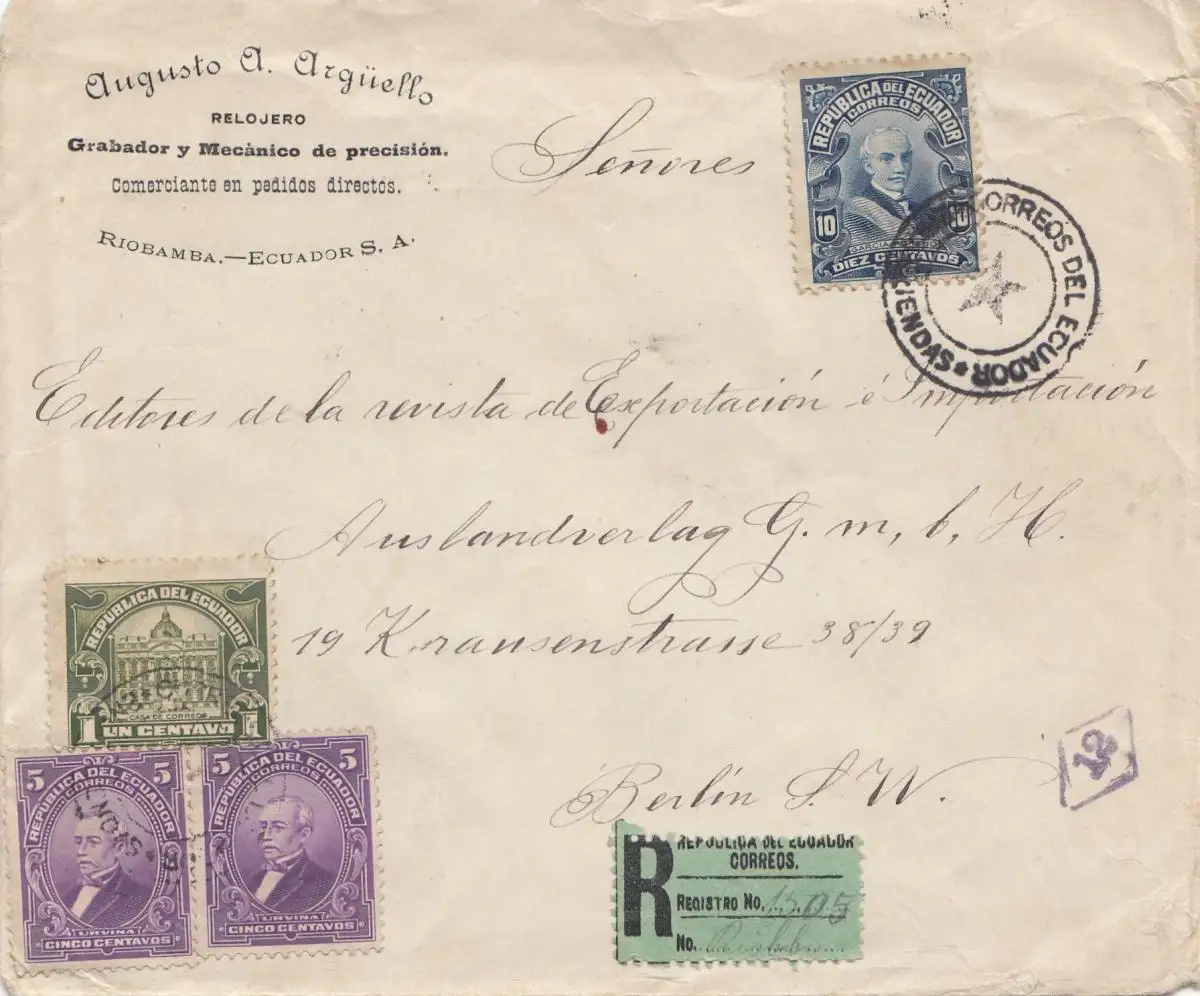 Augusto A. Argüello
RELOJERO
Grabador y Mecànico de precisión.
Comerciante en pedidos directos.
RIOBAMBA.—ECUADOR S. A.
Señores
REPUBLICA DEL ECUADOR
CORREOS
10 10
GARCIA MORENO
DIEZ CENTAVOS
CORREOS DEL ECUADOR
Editores de la revista de Exportación é Importación
Auslandverlag G. m, b, H.
19 Krausenstrasse 38/39
Berlín S. W.
REPUBLICA DEL ECUADOR
CASA DE CORREOS
1 1
UN CENTAVO
5 5
REPUBLICA DEL ECUADOR
CORREOS
URVINA
CINCO CENTAVOS
5 5
REPUBLICA DEL ECUADOR
CORREOS
URVINA
CINCO CENTAVOS
12
R
REPUBLICA DEL ECUADOR
CORREOS.
REGISTRO No. 1505
No.